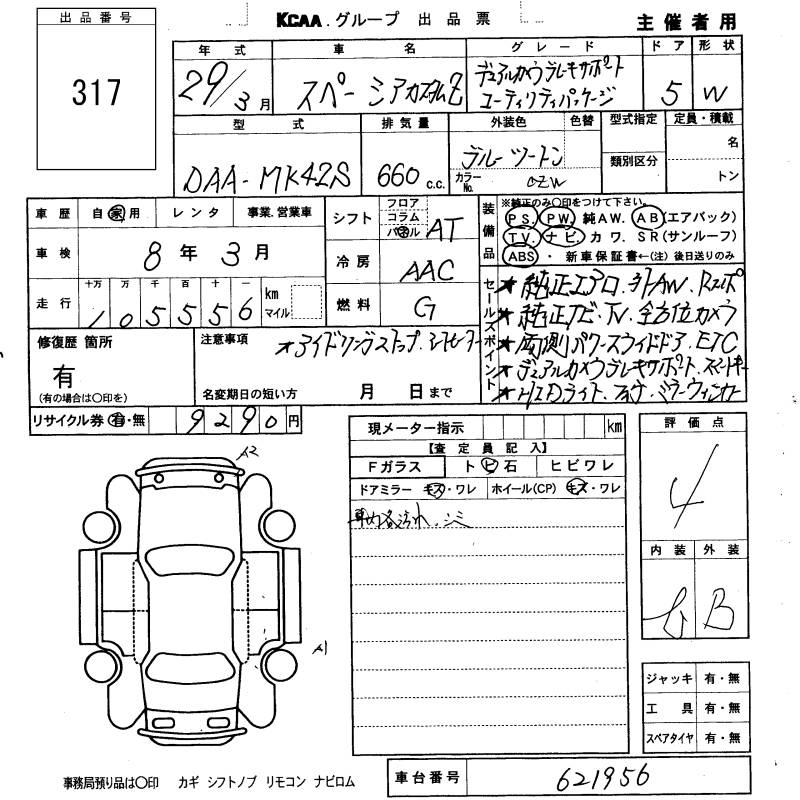 出品番号
317
KCAA.グループ 出品票
主催者用
年式 車名 グレード ドア 形状
29/3月 スペーシアカスタムZ デュアルカメラブレーキサポート
ユーティリティパッケージ 5 W
型式 排気量 外装色 色替 型式指定 定員・積載
DAA-MK42S 660 c.c. ブルーツートン 類別区分 名
カラーNo. CZW トン
車歴 自 家 用 レンタ 事業.営業車
車検 8年3月
走行 十万 万 千 百 十 一 km マイル
105556
シフト フロア コラム パネル AT
冷房 AAC
燃料 G
装備品 ※純正のみ〇印をつけて下さい。
P S. PW. 純AW. A B (エアバック)
T V. ナ ビ. カ ワ. S R (サンルーフ)
ABS ・ 新車保証書←(注)後日送りのみ
セールスポイント
★純正エアロ.
★純正ナビ・TV.全方位カメラ
★両側パワースライドドア.ETC
★デュアルカメラブレーキサポート.スマートキー
★HIDライト.ミラーウィンカー
修復歴 箇所
有
(有の場合は〇印を)
注意事項
★アイドリングストップ.シートヒーター
名変期日の短い方 月 日まで
リサイクル券 有・無 9290円
現メーター指示 km
【査定員記入】
Fガラス ト ビ 石 ヒビワレ
ドアミラー キズ・ワレ ホイール(CP) キズ・ワレ
車内各汚れ.シミ
評価点
4
内装 外装
B
A2
A1
ジャッキ 有・無
工具 有・無
スペアタイヤ 有・無
事務局預り品は〇印 カギ シフトノブ リモコン ナビロム
車台番号 621956